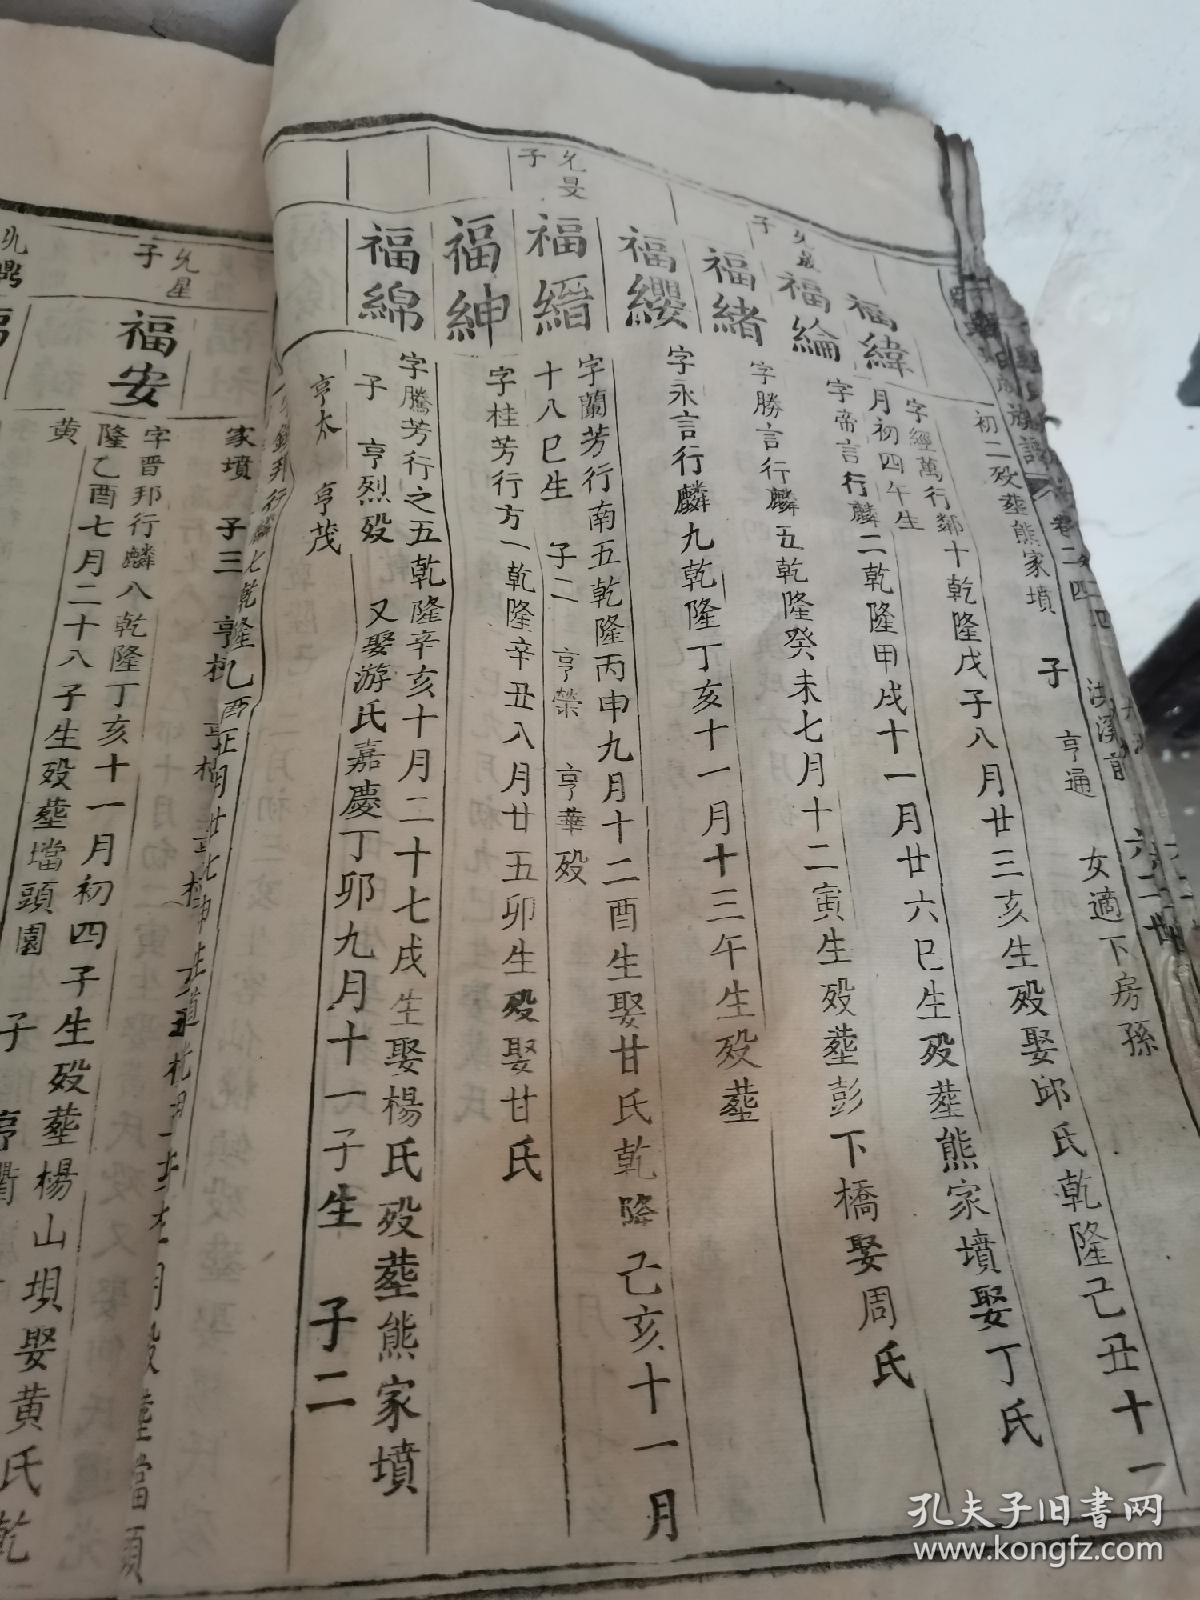 初二殁塟熊家墳 子 亨通 女適下房孫
福緯
字經萬行鄰十乾隆戊子八月廿三亥生殁娶邱氏乾隆己丑十一
月初四午生
福綸
字帝言行麟二乾隆甲戌十一月廿六巳生殁塟熊家墳娶丁氏
子
福緒
字勝言行麟五乾隆癸未七月十二寅生殁塟彭下橋娶周氏
福纓
字永言行麟九乾隆丁亥十一月十三午生殁塟
允旻
子
福縉
字蘭芳行南五乾隆丙申九月十二酉生娶甘氏乾隆己亥十一月
十八巳生 子二 亨榮 亨華殁
福紳
字桂芳行方一乾隆辛丑八月廿五卯生殁娶甘氏
福綿
字騰芳行之五乾隆辛亥十月二十七戌生娶楊氏殁塟熊家墳
子 亨烈殁 又娶游氏嘉慶丁卯九月十一子生 子二
亨太 亨茂
家墳 子三
允星
子
福安
字晋邦行麟八乾隆丁亥十一月初四子生殁塟楊山垻娶黄氏乾
隆乙酉七月二十八子生殁塟壋頭園 子
黄
孔夫子旧书网
www.kongfz.com